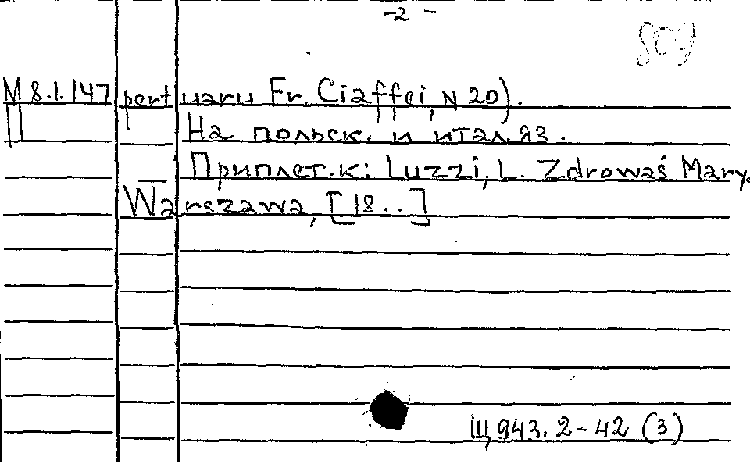 -2-
804
М 8.1./147 portuaru Fr. Ciaffei, N 20).
П На польск. и итал. яз.
Приплет. к: Luzzi, L. Zdrowaś Mary.
Warszawa, [18..]
Щ 943.2-42 (3)